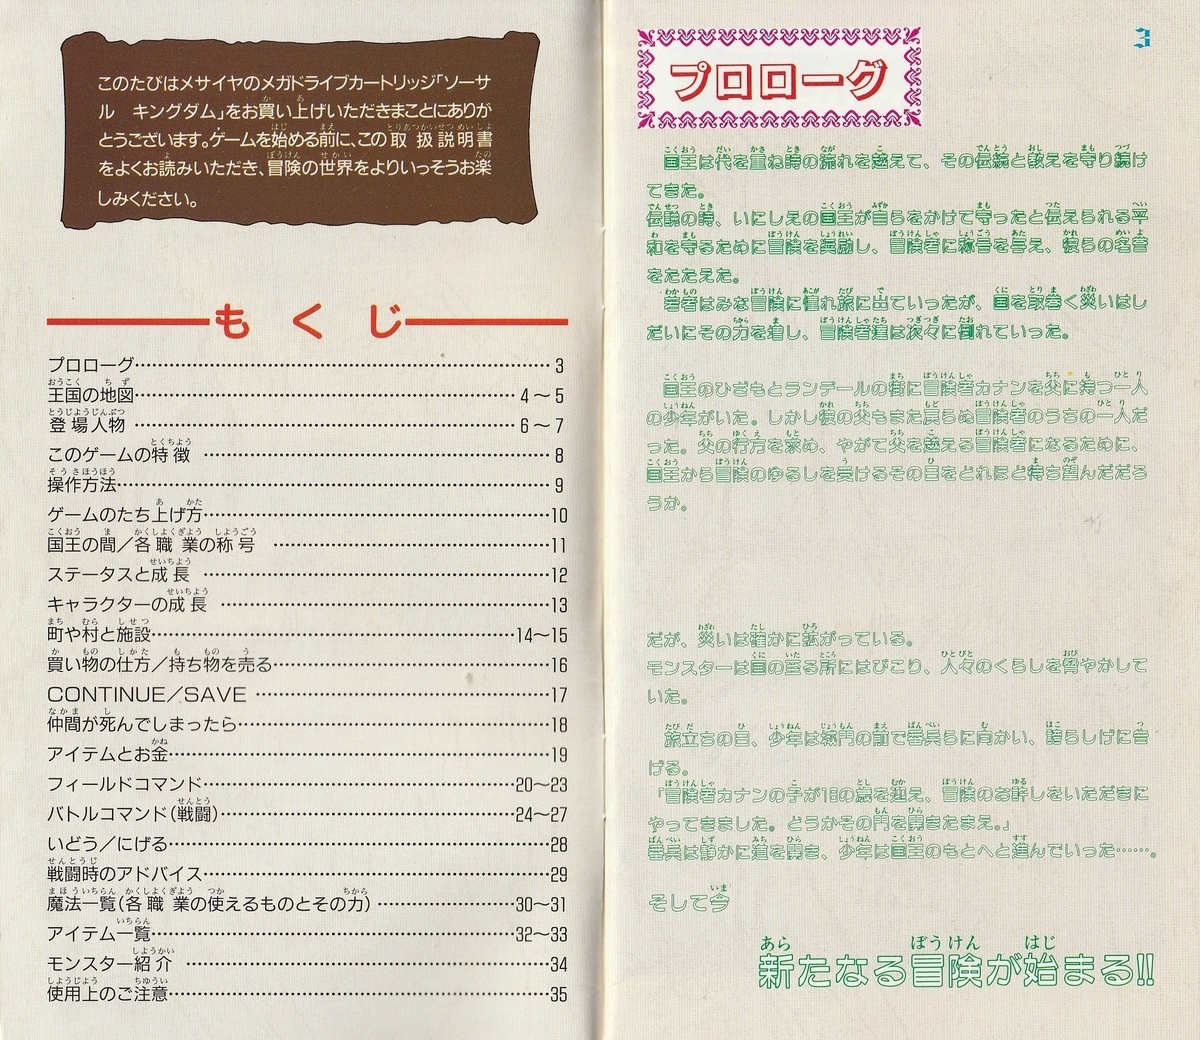 このたびはメサイヤのメガドライブカートリッジ「ソーサ
ル キングダム」をお買い上げいただきまことにありが
とうございます。ゲームを始める前に、この取扱説明書
をよくお読みいただき、冒険の世界をよりいっそうお楽
しみください。
もくじ
プロローグ……3
王国の地図……4～5
登場人物……6～7
このゲームの特徴……8
操作方法……9
ゲームのたち上げ方……10
国王の間／各職業の称号……11
ステータスと成長……12
キャラクターの成長……13
町や村と施設……14～15
買い物の仕方／持ち物を売る……16
CONTINUE／SAVE……17
仲間が死んでしまったら……18
アイテムとお金……19
フィールドコマンド……20～23
バトルコマンド（戦闘）……24～27
いどう／にげる……28
戦闘時のアドバイス……29
魔法一覧（各職業の使えるものとその力）……30～31
アイテム一覧……32～33
モンスター紹介……34
使用上のご注意……35
3
プロローグ
国王は代を重ね時の流れを越えて、その伝統と教えを守り続け
てきた。
伝説の時、いにしえの国王が自らをかけて守ったと伝えられる平
和を守るために冒険を奨励し、冒険者に称号を与え、彼らの名誉
をたたえた。
若者はみな冒険に憧れ旅に出ていったが、国を取巻く災いはし
だいにその力を増し、冒険者達は次々に倒れていった。
国王のひざもとランデールの街に冒険者カナンを父に持つ一人
の少年がいた。しかし彼の父もまた戻らぬ冒険者のうちの一人だ
った。父の行方を求め、やがて父を越える冒険者になるために、
国王から冒険のゆるしを受けるその日をどれほど待ち望んだだろ
うか。
だが、災いは確かに拡がっている。
モンスターは国の至る所にはびこり、人々のくらしを脅やかして
いた。
旅立ちの日、少年は城門の前で番兵らに向かい、誇らしげに告
げる。
「冒険者カナンの子が16の歳を迎え、冒険のお許しをいただきに
やってきました。どうかその門を開きたまえ。」
番兵は静かに道を開き、少年は国王のもとへと進んでいった……。
そして今
新たなる冒険が始まる!!